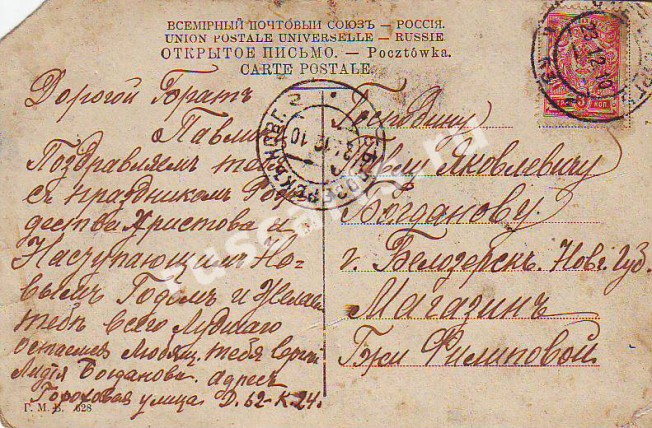 ВСЕМІРНЫЙ ПОЧТОВЫЙ СОЮЗЪ — РОССІЯ.
UNION POSTALE UNIVERSELLE — RUSSIE
ОТКРЫТОЕ ПИСЬМО. — Pocztówka.
CARTE POSTALE
Дорогой Братъ
Павлик
Поздравляем тебя
с праздником Рож
дества Христова и
Наступающимъ Но-
вымъ Годомъ и Желаем
тебѣ всего Лучшаго
остаемся Любящ. тебя Сергѣй
Лидія Богданова. адресъ
Гороховая улица Д. 62-К.24.
Г. М. Б. 628
Господину
Павлу Яковлевичу
Богданову.
г. Белозерскъ. Новг. Губ.
Магазинъ
Г-жи Филиповой
БѢЛОЗЕРСКЪ НОВГ.
23 12 10
КОП
ruscards.ru